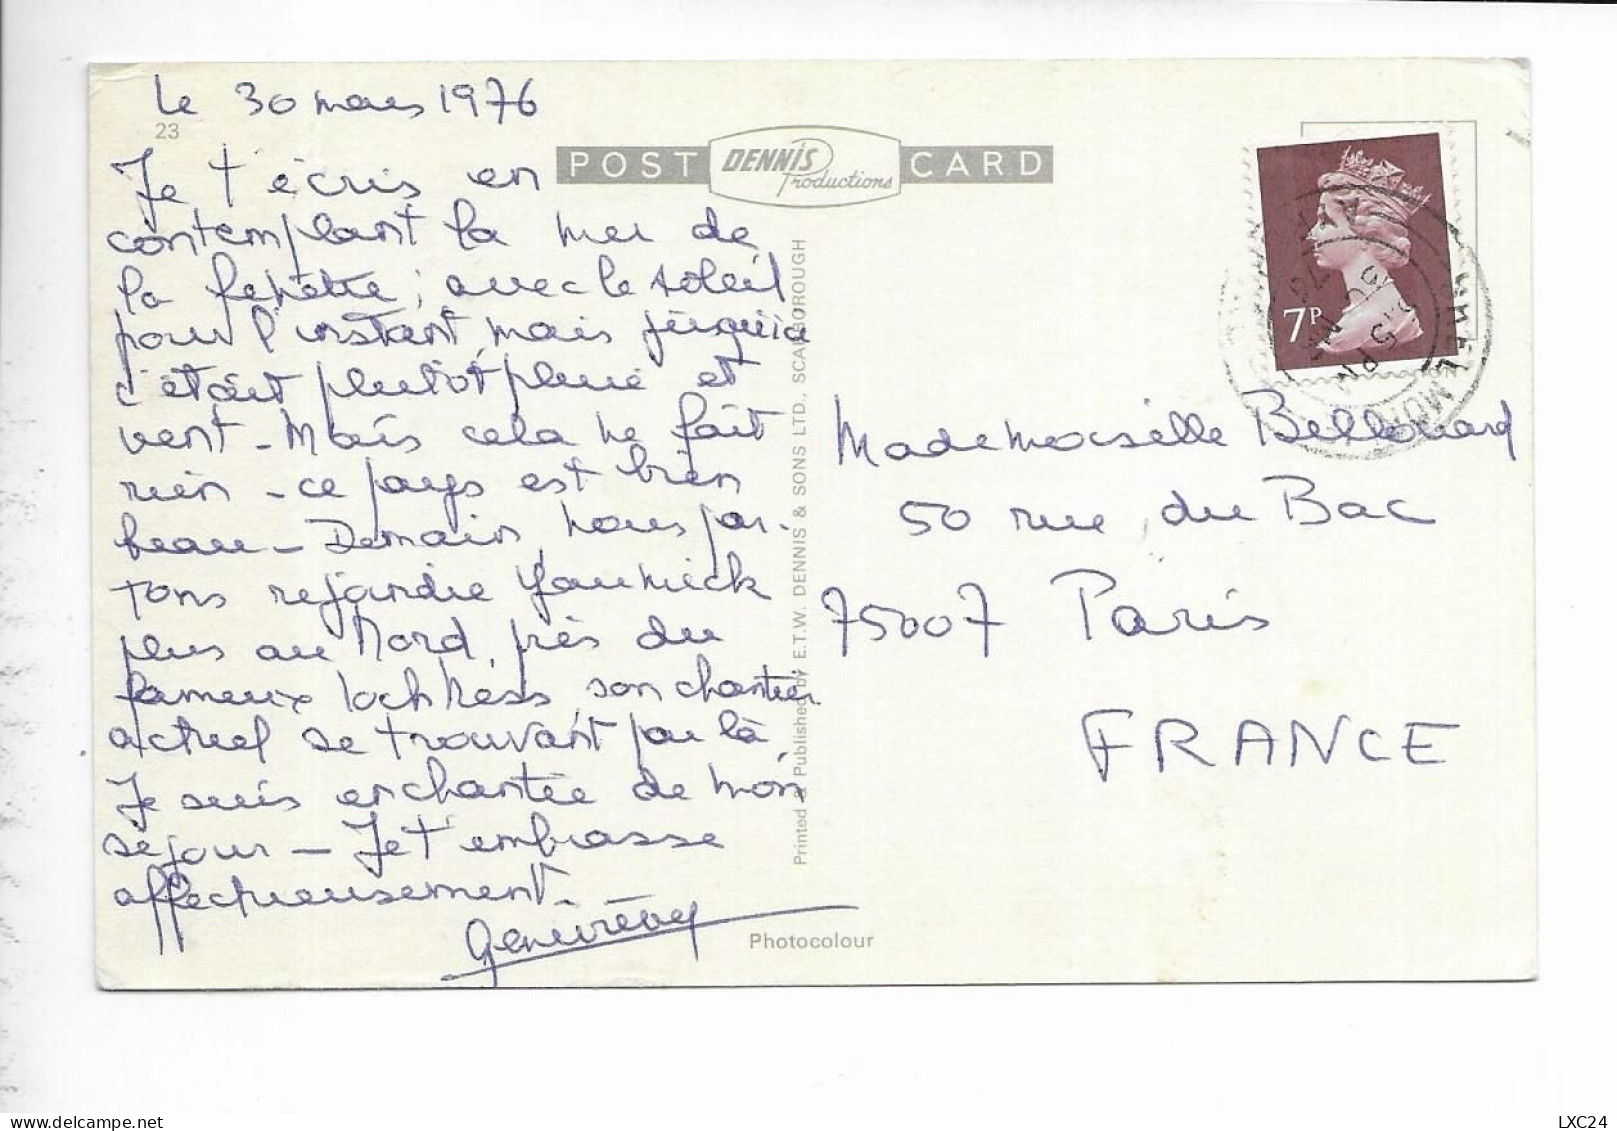 le 30 mars 1976
23
Je t'écris en
contemplant la mer de
la fenêtre ; avec le soleil
pour l'instant, mais jusqu'ici
c'était plutôt pluie et
vent - Mais cela ne fait
rien - ce pays est bien
beau - Demain, nous par-
tons rejoindre Yannick
plus au Nord, près du
fameux loch Ness, son chantier
actuel se trouvant par là.
Je suis enchantée de mon
séjour - Je t'embrasse
affectueusement.
POST DENNIS Productions CARD
Printed & Published by E.T.W. DENNIS & SONS LTD., SCARBOROUGH
Photocolour
7P
Mademoiselle Bellouard
50 rue du Bac
75007 Paris
FRANCE
LXC24